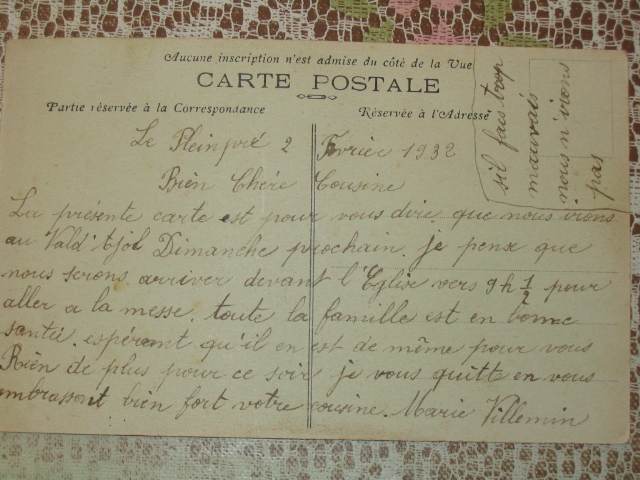 Aucune inscription n'est admise du côté de la Vue
CARTE POSTALE
Partie réservée à la Correspondance
Réservée à l'Adresse
Le Pleinpré 2 Fevrier 1932
Bien Chère Cousine
La présente carte est pour vous dire que nous irons
au Vald'Ajol Dimanche prochain. je pense que
nous serons arriver devant l'Eglise vers 9h 1/2 pour
aller a la messe. toute la famille est en bonne
santé. espérant qu'il en est de même pour vous
Rien de plus pour ce soir je vous quitte en vous
embrassant bien fort votre cousine. Marie Villemin
sil fais trop
mauvais
nous n'irons
pas